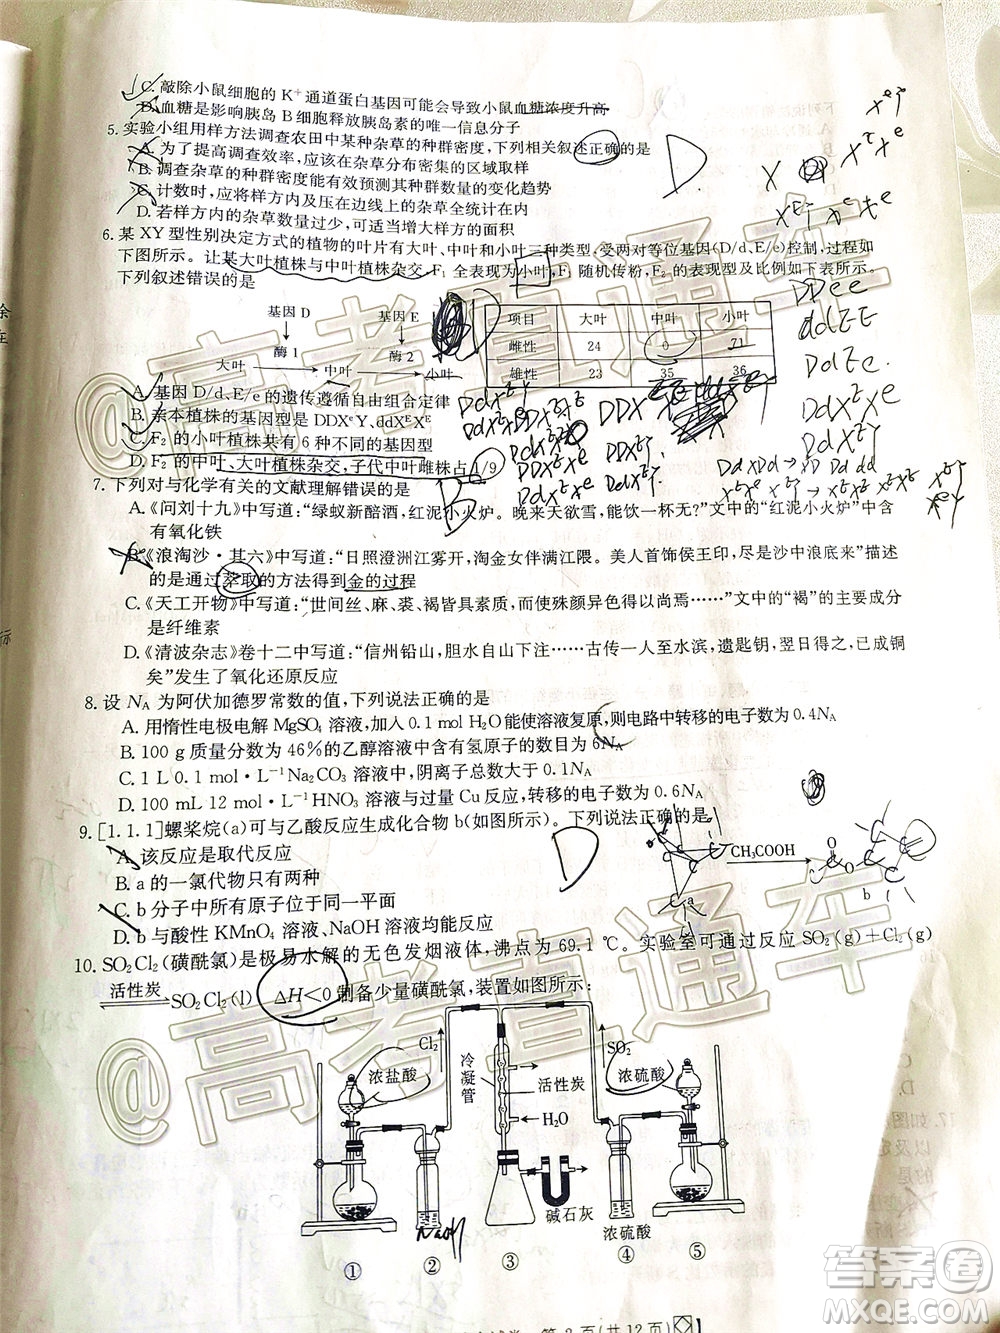 C. 敲除小鼠细胞的 K⁺ 通道蛋白基因可能会导致小鼠血糖浓度升高
D. 血糖是影响胰岛 B 细胞释放胰岛素的唯一信息分子
5. 实验小组用样方法调查农田中某种杂草的种群密度,下列相关叙述正确的是
A. 为了提高调查效率,应该在杂草分布密集的区域取样
B. 调查杂草的种群密度能有效预测其种群数量的变化趋势
C. 计数时,应将样方内及压在边线上的杂草全统计在内
D. 若样方内的杂草数量过少,可适当增大样方的面积
D
6. 某 XY 型性别决定方式的植物的叶片有大叶、中叶和小叶三种类型,受两对等位基因(D/d、E/e)控制,过程如
下图所示。让某大叶植株与中叶植株杂交,F₁ 全表现为小叶,F₁ 随机传粉,F₂ 的表现型及比例如下表所示。
下列叙述错误的是
基因 D 基因 E
酶 1 酶 2
大叶 中叶 小叶
项目 大叶 中叶 小叶
雌性 24 0 71
雄性 23 35 36
DDee
ddEE
DdEe
A. 基因 D/d、E/e 的遗传遵循自由组合定律
B. 亲本植株的基因型是 DDXᵉY、ddXᴱXᴱ
C. F₂ 的小叶植株共有 6 种不同的基因型
D. F₂ 的中叶、大叶植株杂交,子代中叶雌株占 1/9
7. 下列对与化学有关的文献理解错误的是
B
A.《问刘十九》中写道:“绿蚁新醅酒,红泥小火炉。晚来天欲雪,能饮一杯无?”文中的“红泥小火炉”中含
有氧化铁
B.《浪淘沙·其六》中写道:“日照澄洲江雾开,淘金女伴满江隈。美人首饰侯王印,尽是沙中浪底来”描述
的是通过萃取的方法得到金的过程
C.《天工开物》中写道:“世间丝、麻、裘、褐皆具素质,而使殊颜异色得以尚焉……”文中的“褐”的主要成分
是纤维素
D.《清波杂志》卷十二中写道:“信州铅山,胆水自山下注……古传一人至水滨,遗匙钥,翌日得之,已成铜
矣”发生了氧化还原反应
8. 设 Nᴀ 为阿伏加德罗常数的值,下列说法正确的是
A. 用惰性电极电解 MgSO₄ 溶液,加入 0.1 mol H₂O能使溶液复原,则电路中转移的电子数为 0.4Nᴀ
B. 100 g 质量分数为 46%的乙醇溶液中含有氢原子的数目为 6Nᴀ
C. 1 L 0.1 mol·L⁻¹Na₂CO₃ 溶液中,阴离子总数大于 0.1Nᴀ
D. 100 mL 12 mol·L⁻¹HNO₃ 溶液与过量 Cu 反应,转移的电子数为 0.6Nᴀ
9. [1.1.1]螺桨烷(a)可与乙酸反应生成化合物 b(如图所示)。下列说法正确的是
D
CH₃COOH
a
b
A. 该反应是取代反应
B. a 的一氯代物只有两种
C. b 分子中所有原子位于同一平面
D. b 与酸性 KMnO₄ 溶液、NaOH 溶液均能反应
10. SO₂Cl₂(磺酰氯)是极易水解的无色发烟液体,沸点为 69.1 ℃。实验室可通过反应 SO₂(g)+Cl₂(g)
活性炭
SO₂Cl₂(l) ΔH<0 制备少量磺酰氯,装置如图所示:
Cl₂
浓盐酸
冷凝管
活性炭
H₂O
SO₂
浓硫酸
碱石灰
浓硫酸
NaOH
① ② ③ ④ ⑤
第 2 页(共 12 页)
@高考直通车
@高考直通车
答案圈
MXQE.COM